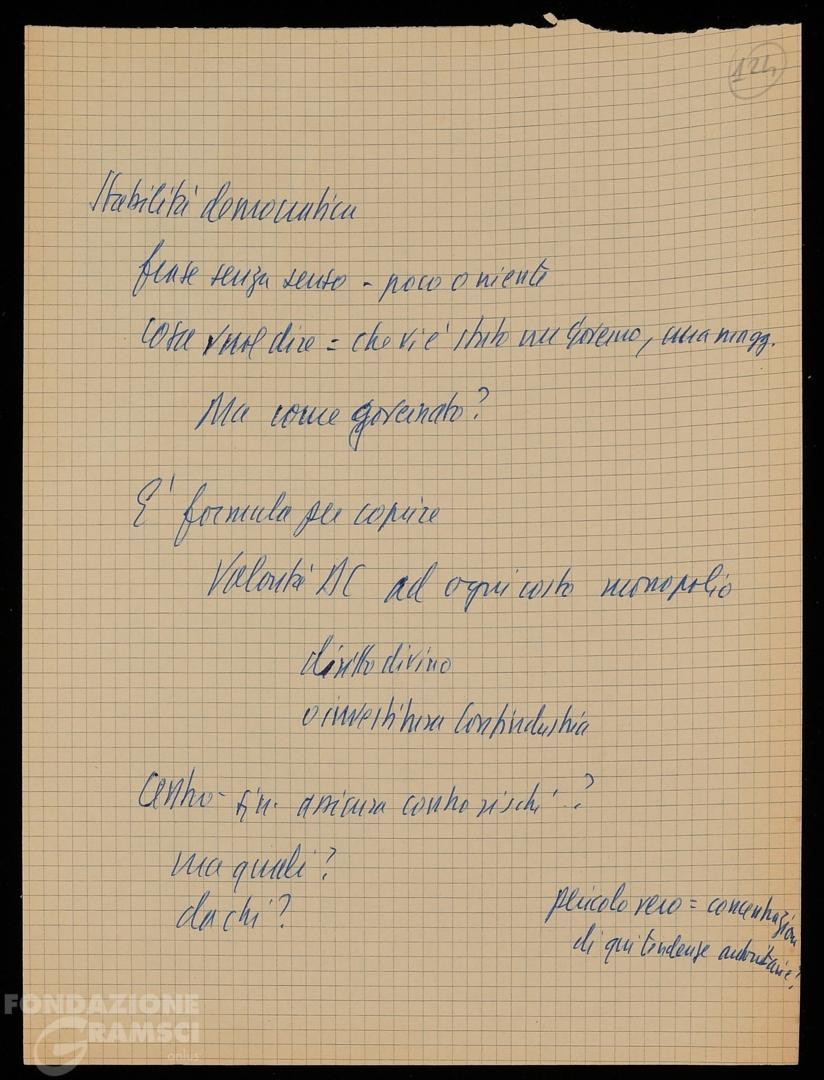 124
Stabilità democratica
frase senza senso - poco o niente
cosa vuol dire = che vi è stato un Governo, una magg.
Ma come governato?
E' formula per coprire
Volontà DC ad ogni costo monopolio
diritto divino
o investitura Confindustria
Centro-sin. assicura contro rischi?
ma quali?
da chi?
pericolo vero = concentrazioni
di qui tendenze autoritarie?
FONDAZIONE
GRAMSCI
onlus